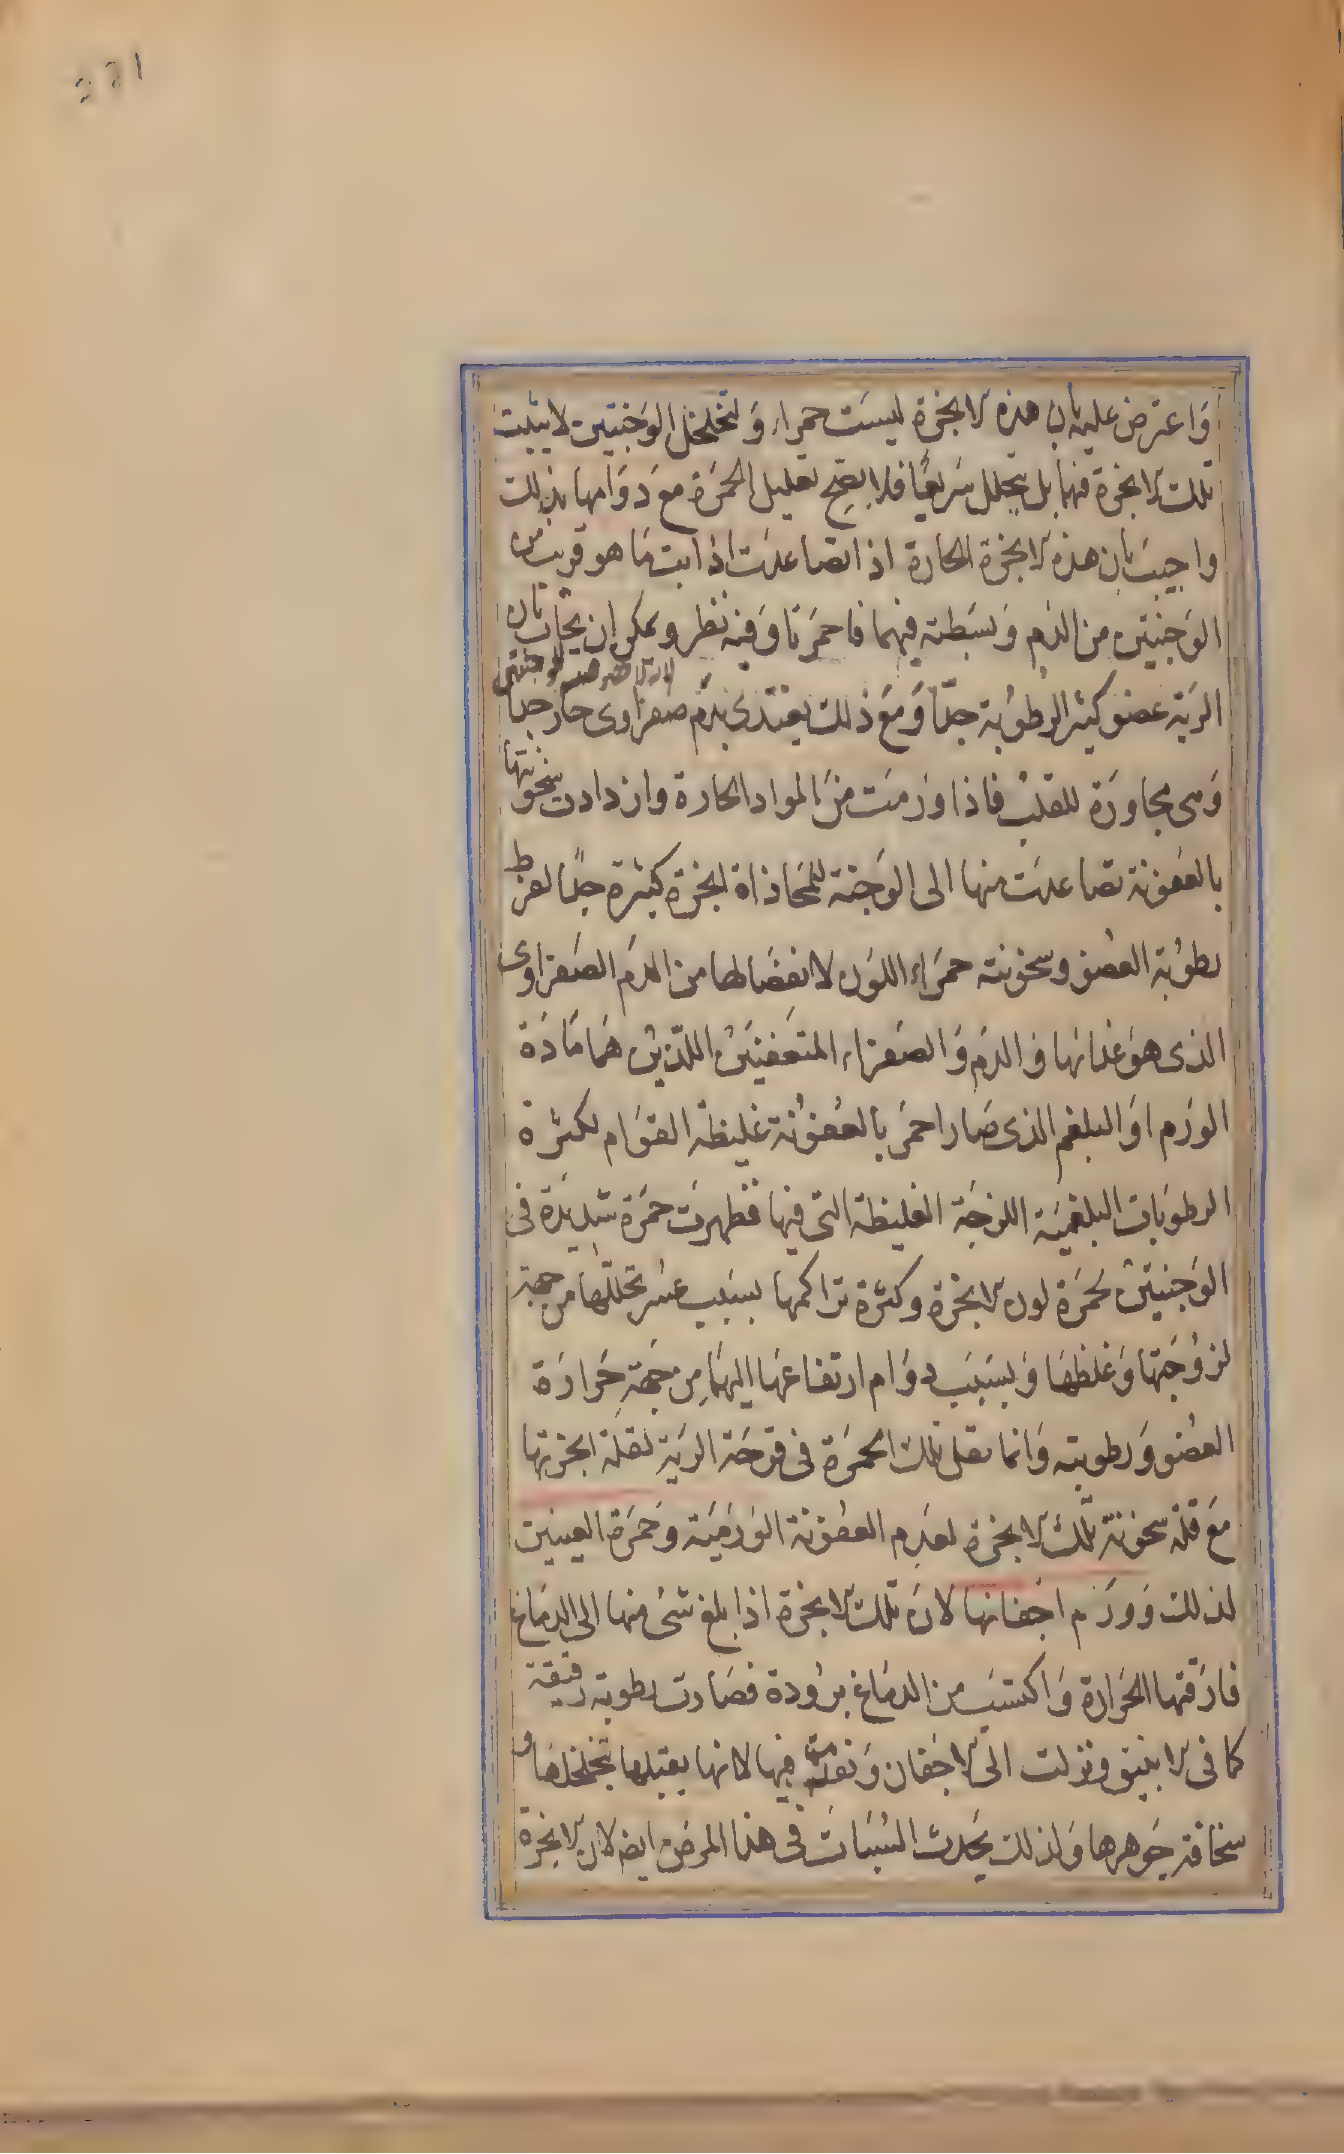 221
وَاعترض عليه بان هذه الابخرة ليسَت حمراء وَلتخلخل الوَجنتين لا يثبت
تلك الابخرة فيهما بل يتحلل سَريعًا فلا يصحّ تعليل الحمَرة مع دوَامها بذلك
واجيبَ بان هذه الابخرة الحارة اذا تصاعدَت اذابت مَا هو قريب من
الوَجنتين من الدَم وَبسَطته فيهما فاحمَرتا وَفيه نظر ويمكن ان يجاب بان
الرية عضو كثير الرطوبة جدّاً وَمَع ذلك يغتذى بدَم صفراوى حار جدا
وَهى مجاورَة للقلب فاذا ورمَت منَ المواد الحارة وازدادت سخونتها
بالعفونة تصاعدَت منها الى الوَجنة للمحَاذاة ابخرَة كثيرة جدًا لفرط
رطوُبة العضو وسخونته حمرَاء اللوَن لانفصَالها من الدَم الصفراوى
الذى هوَ غذائها و الدَم وَالصفراء المتعَفنيَن اللذَين هَما مَادَة
الورَم اوَ البلغم الذى صَار احمَر بالعفوُنة غليظة القوَام لكثرَة
الرطوبَات البلغميَة اللزجَة الغليظة التى فيها فظهرت حمرَة شديدَة فى
الوَجنيتَن لحمَرة لون الابخرة وكثرَة تراكمها بسَبب عسْر تحللها من جهة
لزوُجَتها وَغلظهَا وَبسَبَب دوَام ارتفاعهَا اليهَما مِن جهَة حَرارَة
العضو وَرطوبته وَانما يقل تلك الحمرَة فى قرحَة الرَية لقلة ابخرتها
مَع قلة سخونة تلك الابخرة لعَدم العفونة الوَرَميَة وَحمرَة العينين
لذلك وَورَم اجفانها لان تلك الابخرة اذا بلغ شئ منها الى الدمَاغ
فارَقتها الحَرارة وَاكتسَب من الدمَاغ برُودة فصَارت رطوبة رقيقة
كما فى الانبيق ونزلت الى الاجَفان وَنفدت فيها لانها يقبلها بتخلخلهَا و
سخافة جَوهرها وَلذلك يحَدث السُبَات فى هذا المرَض ايضا لان الابخرة